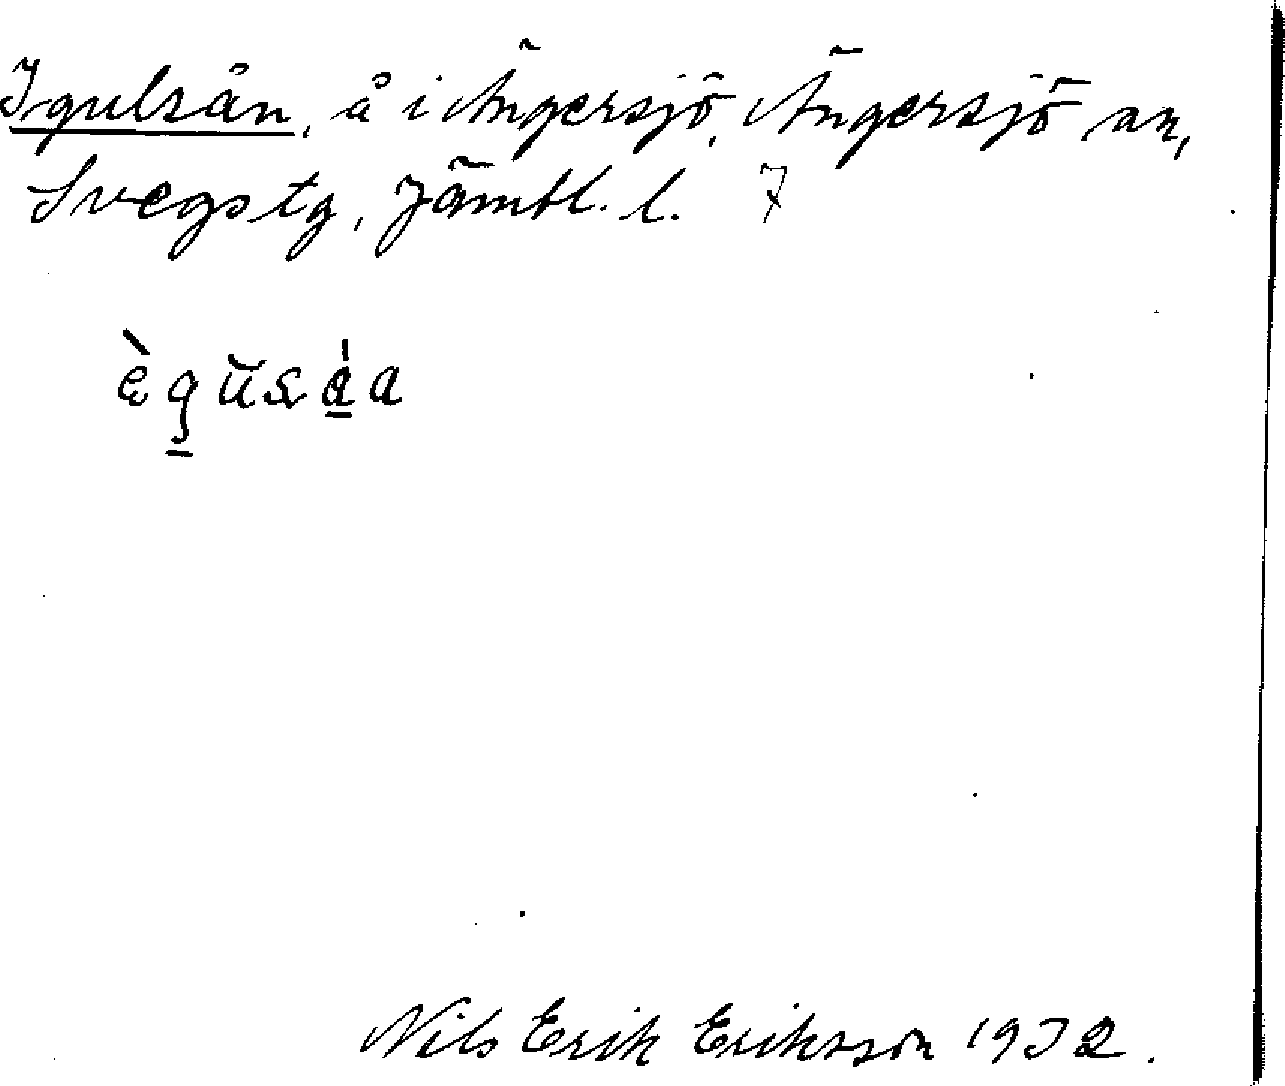 Igulsån, å i Ängersjö, Ängersjö an,
Svegs tg, Jämtl. l. 7
ègŭsa̠̍a
Nils Erik Eriksson 1932.